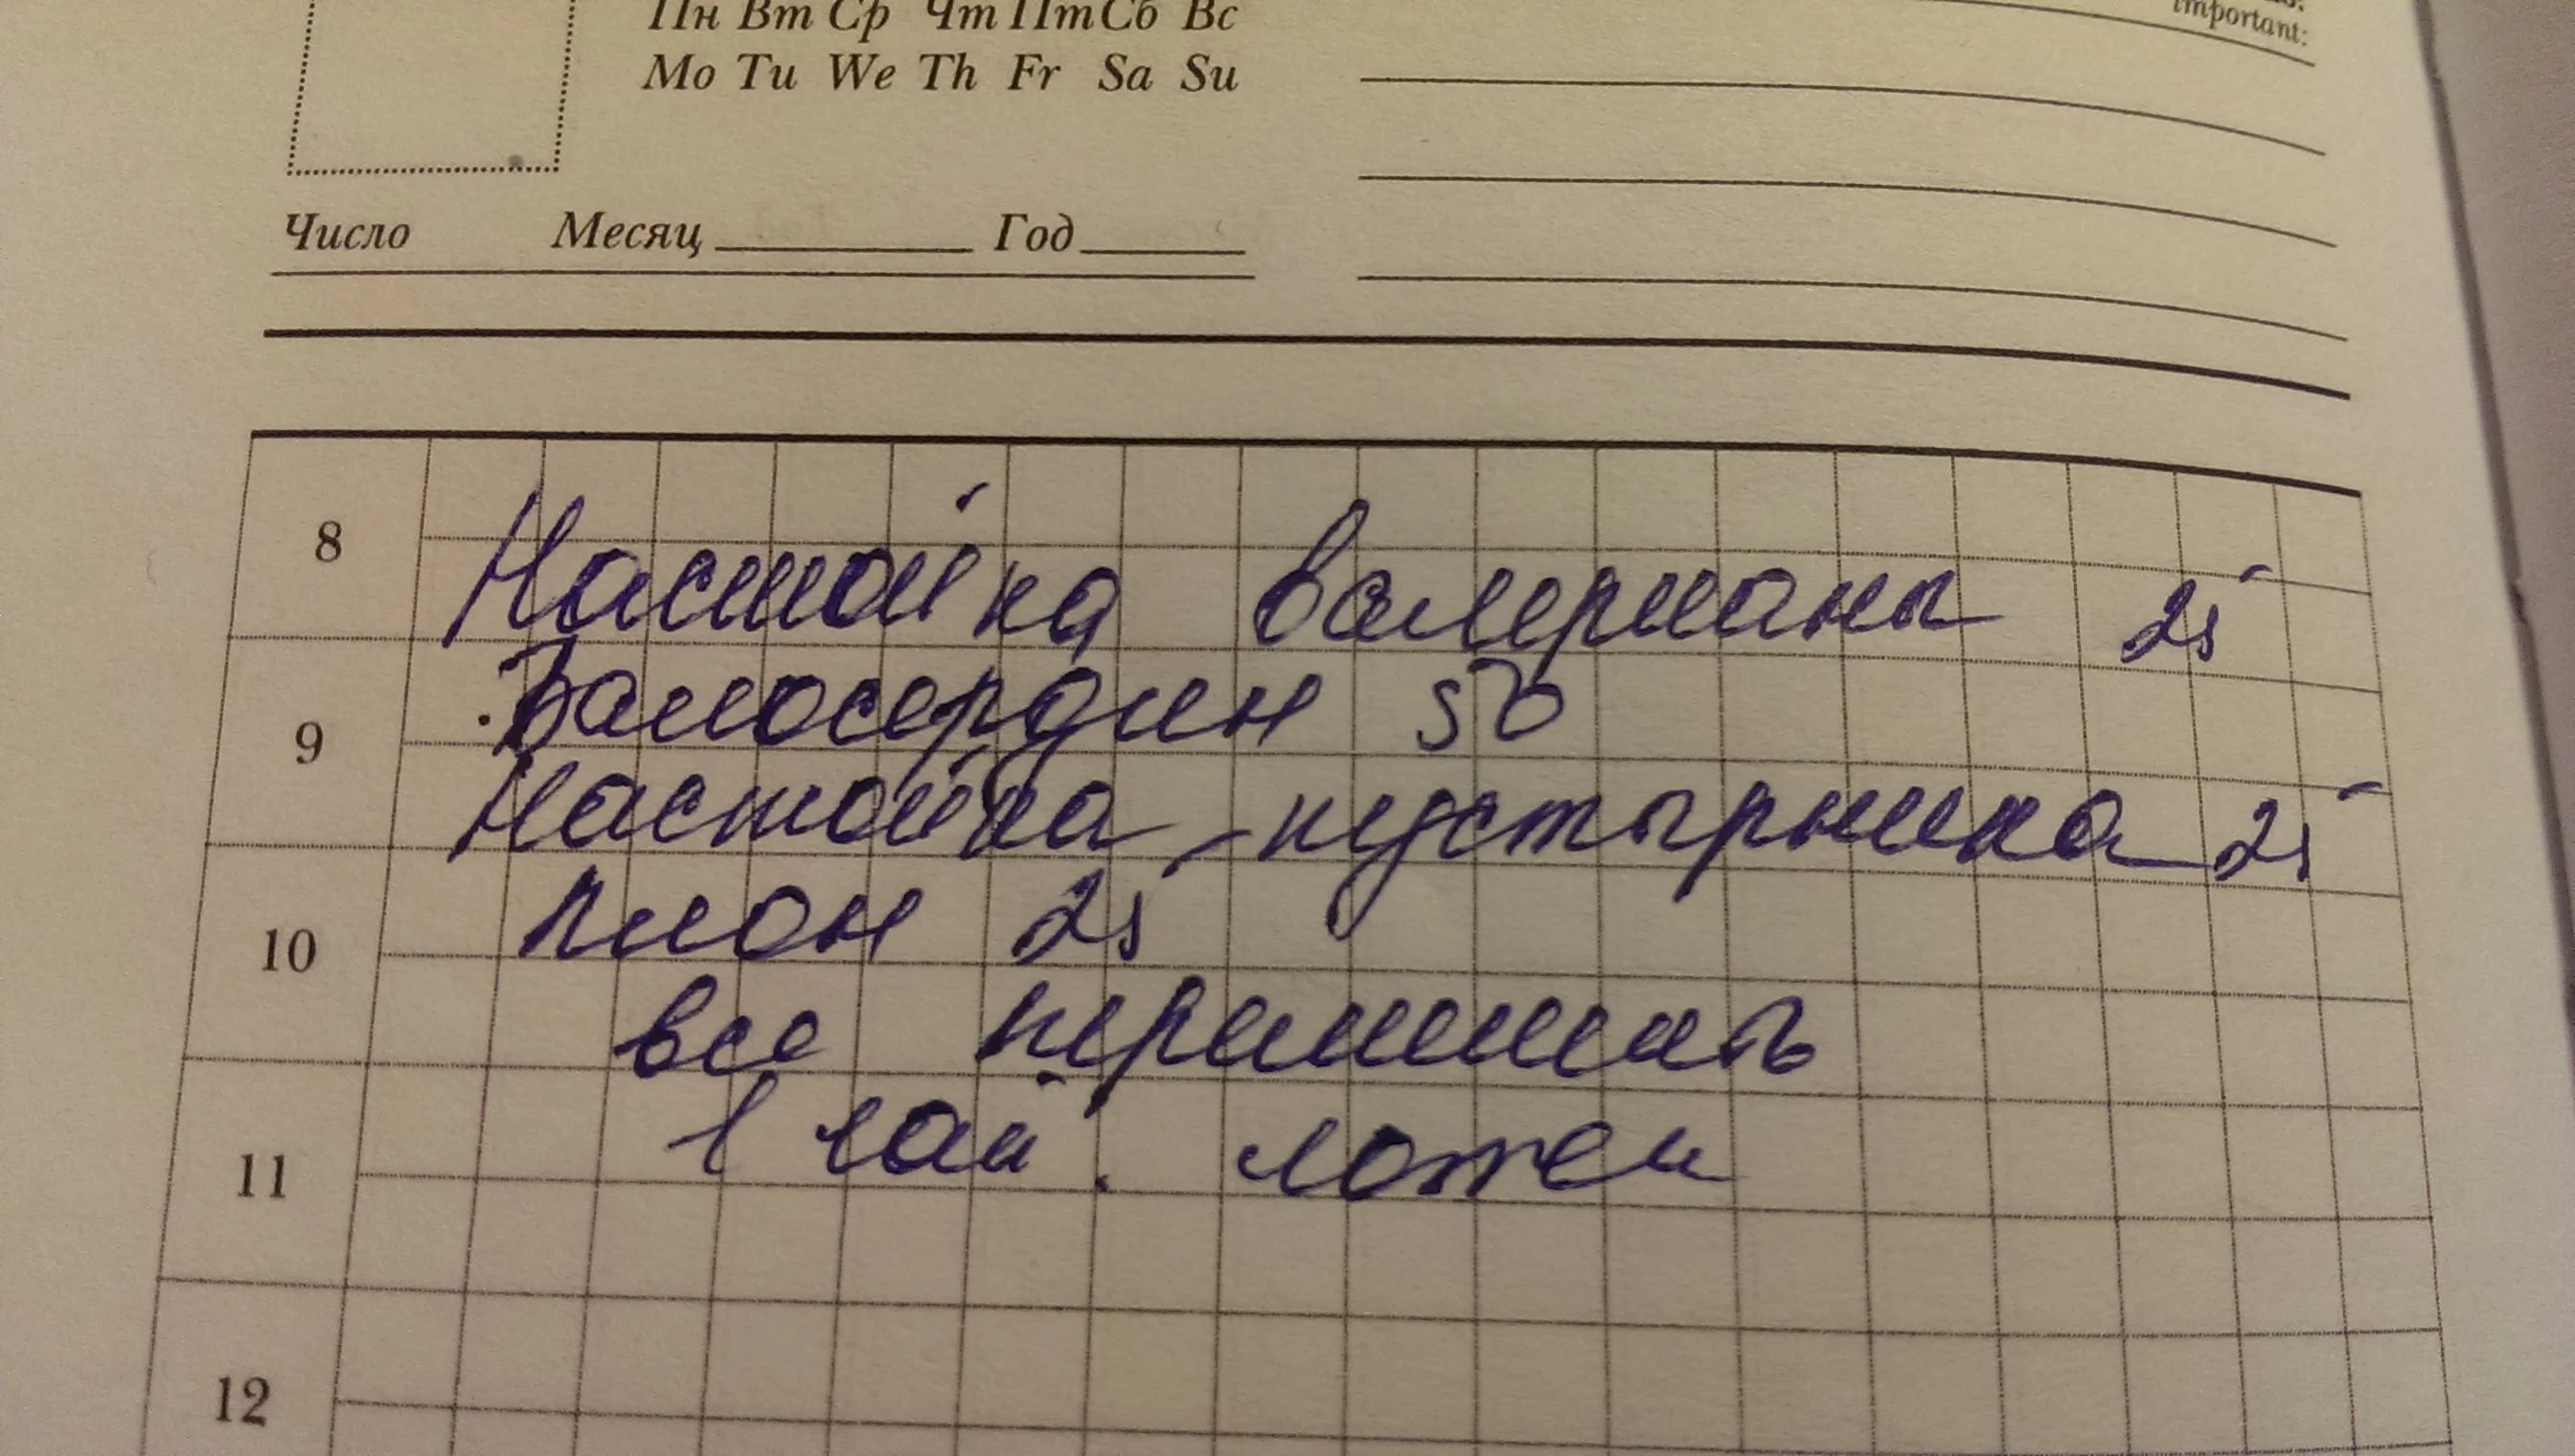 Пн Вт Ср Чт Пт Сб Вс
important:
Mo Tu We Th Fr Sa Su
Число Месяц Год
8
Настойка валерианы 25
9
Валосердин 50
Настойка пустырника 25
10
пион 25
все перемешать
11
1 чай. ложки
12